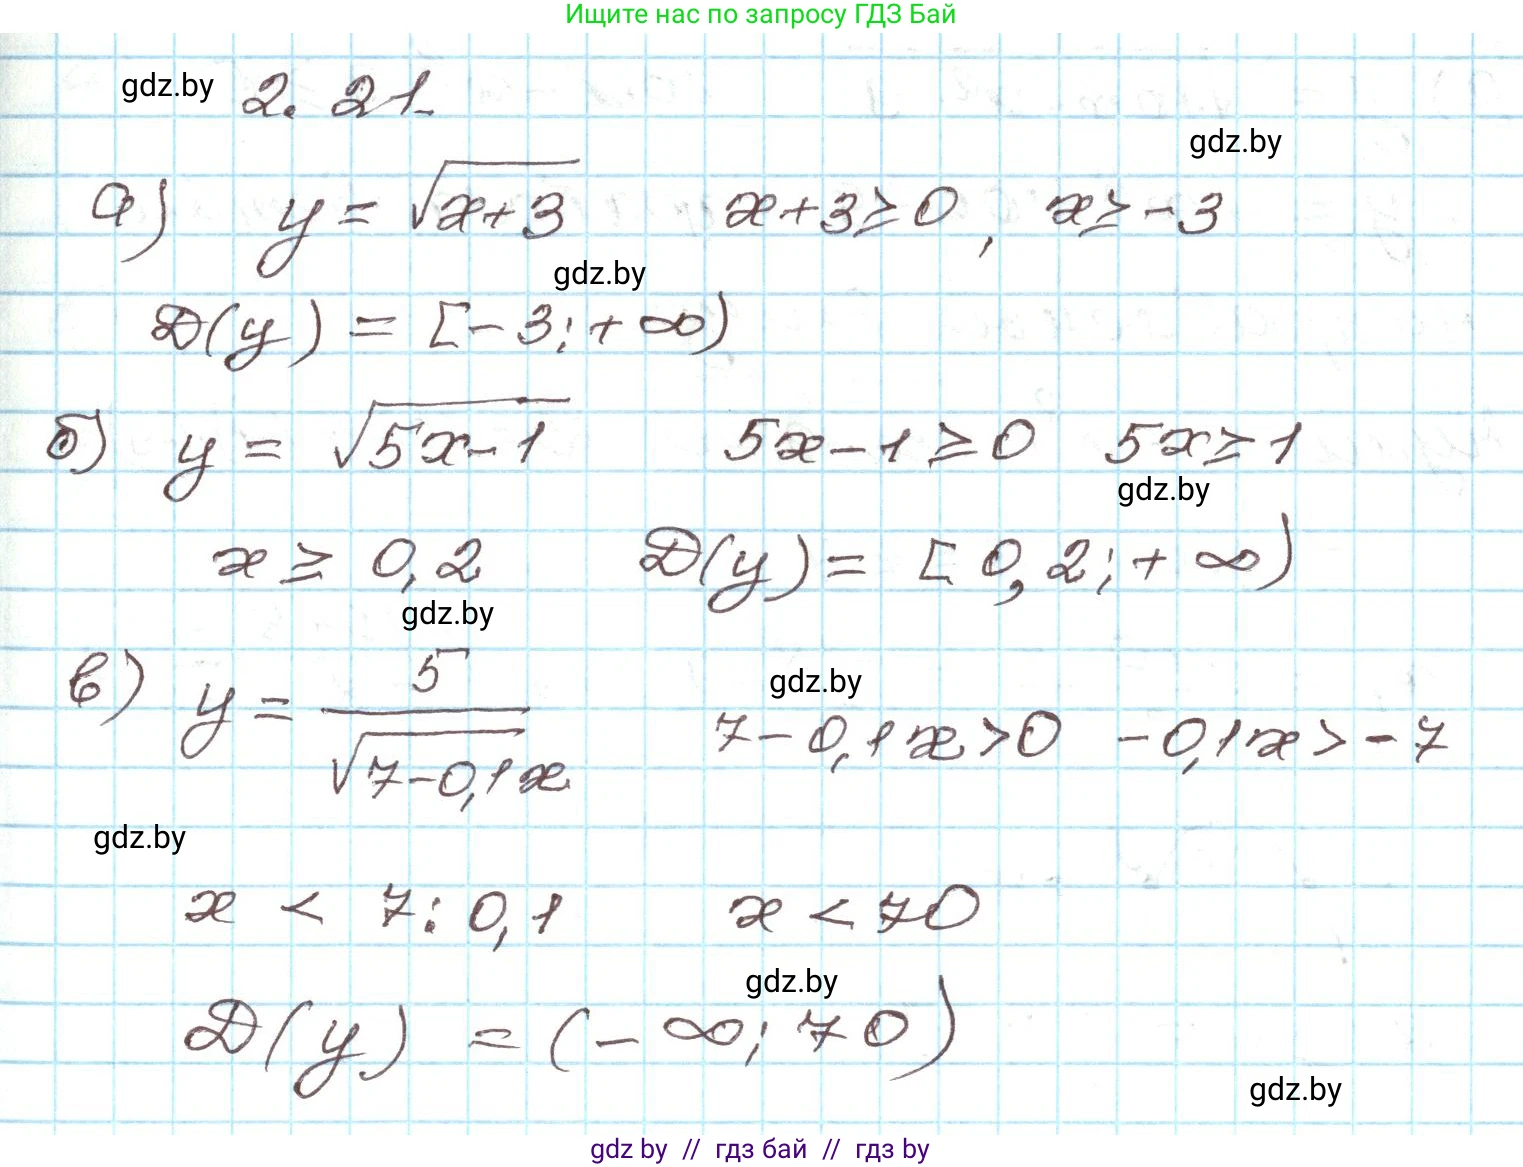 Ищите нас по запросу ГДЗ Бай
gdz.by 2. 21.
gdz.by
а) y = √x+3 x+3≥0, x≥-3
gdz.by
D(y) = [-3; +∞)
б) y = √5x-1 5x-1≥0 5x≥1
gdz.by
x ≥ 0,2 D(y) = [0,2; +∞)
gdz.by
в) y = 5/√7-0,1x 7-0,1x>0 -0,1x>-7
gdz.by
gdz.by
x < 7:0,1 x<70
gdz.by
D(y) = (-∞; 70)
gdz.by
gdz by // гдз бай // гдз by